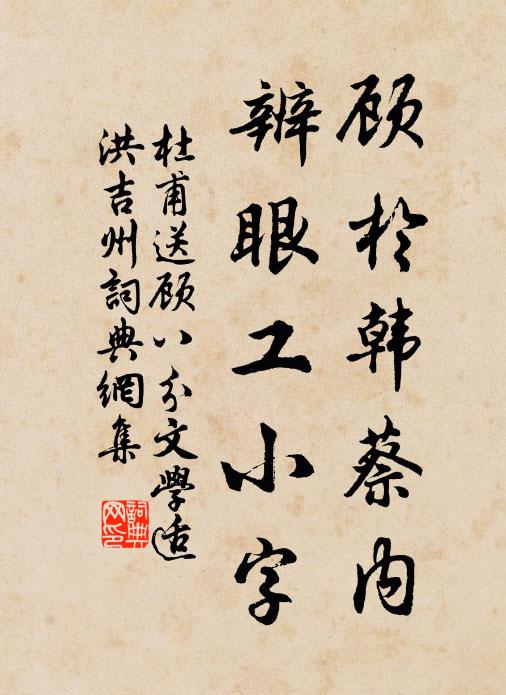 顾於韩蔡内
辨眼工小字
杜甫送顾八分文學适
洪吉州詞典網集
詞典网印